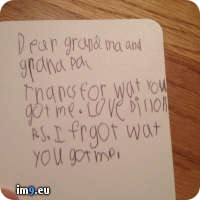 Dear grandma and
grandpa,
Thancs for wat you
got me. Love Dillon
P.S. I frgot wat
you got me.
im9.eu